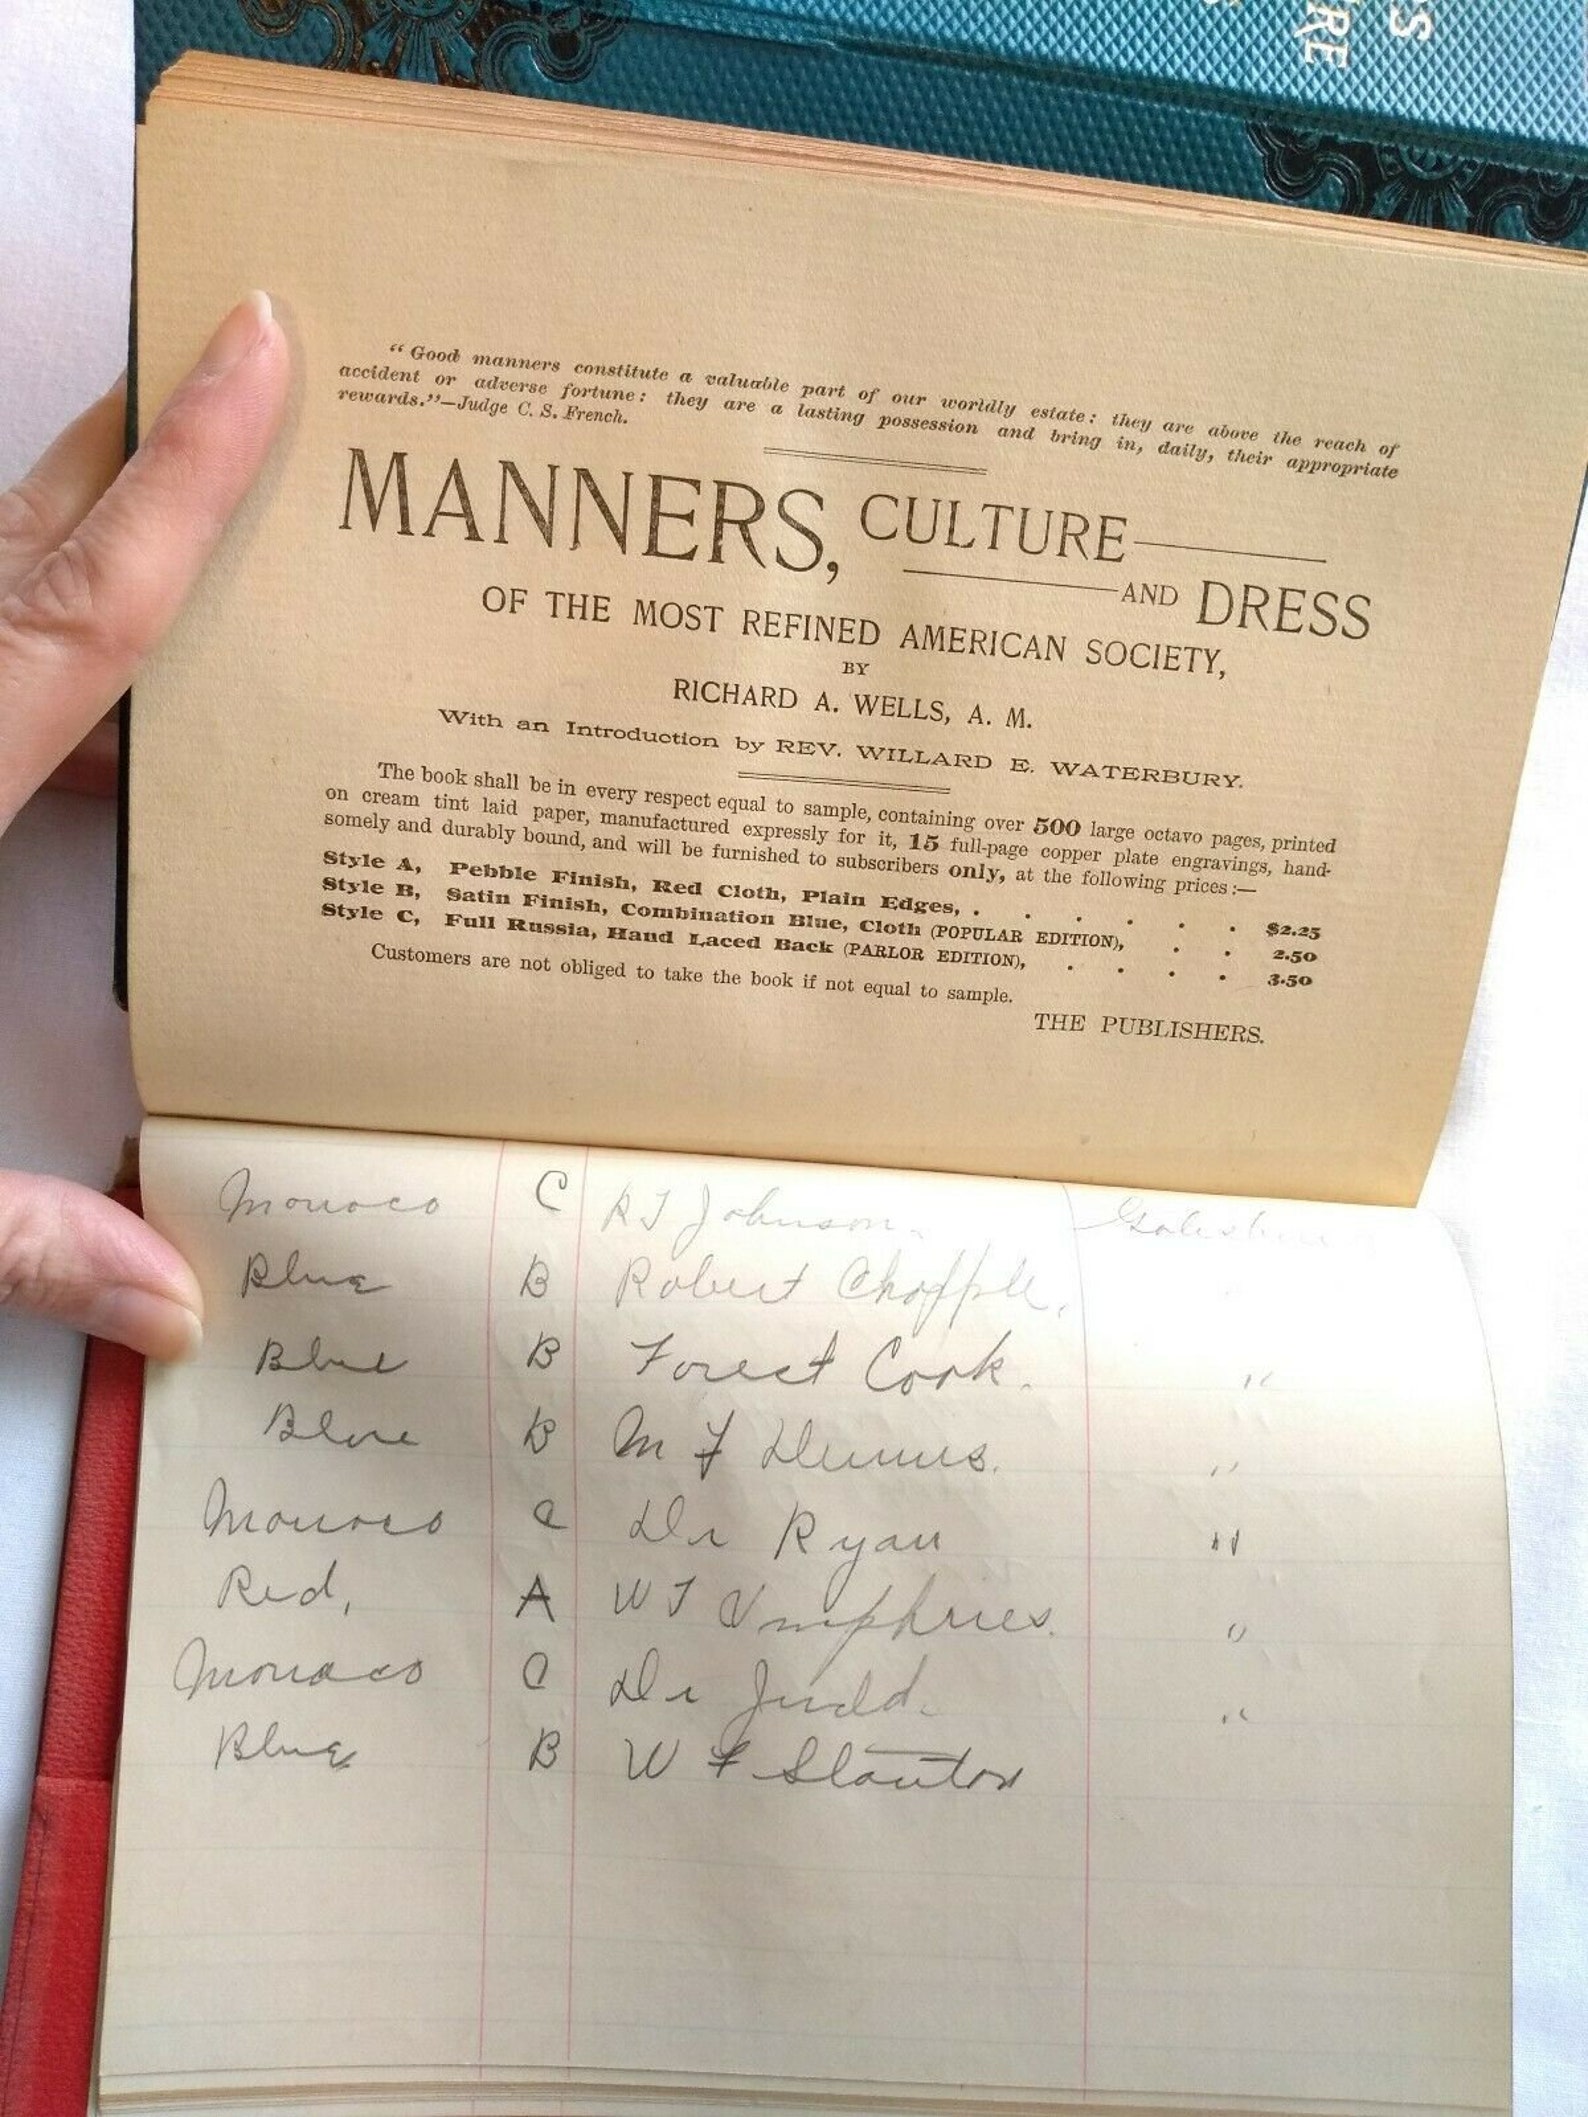 S
RE
"Good manners constitute a valuable part of our worldly estate: they are above the reach of
accident or adverse fortune: they are a lasting possession and bring in, daily, their appropriate
rewards."—Judge C. S. French.
MANNERS, CULTURE
AND DRESS
OF THE MOST REFINED AMERICAN SOCIETY,
BY
RICHARD A. WELLS, A. M.
With an Introduction by REV. WILLARD E. WATERBURY.
The book shall be in every respect equal to sample, containing over 500 large octavo pages, printed
on cream tint laid paper, manufactured expressly for it, 15 full-page copper plate engravings, hand-
somely and durably bound, and will be furnished to subscribers only, at the following prices:—
Style A, Pebble Finish, Red Cloth, Plain Edges, . . . . . . $2.25
Style B, Satin Finish, Combination Blue, Cloth (POPULAR EDITION), . . 2.50
Style C, Full Russia, Hand Laced Back (PARLOR EDITION), . . . . 3.50
Customers are not obliged to take the book if not equal to sample.
THE PUBLISHERS.
C R T Johnson.
Blue B Robert
Blue B Forest Cook. "
Blue B M F "
C Dr Ryan "
Red, A W T Umphries. "
C Dr Judd. "
Blue B W F Stanton